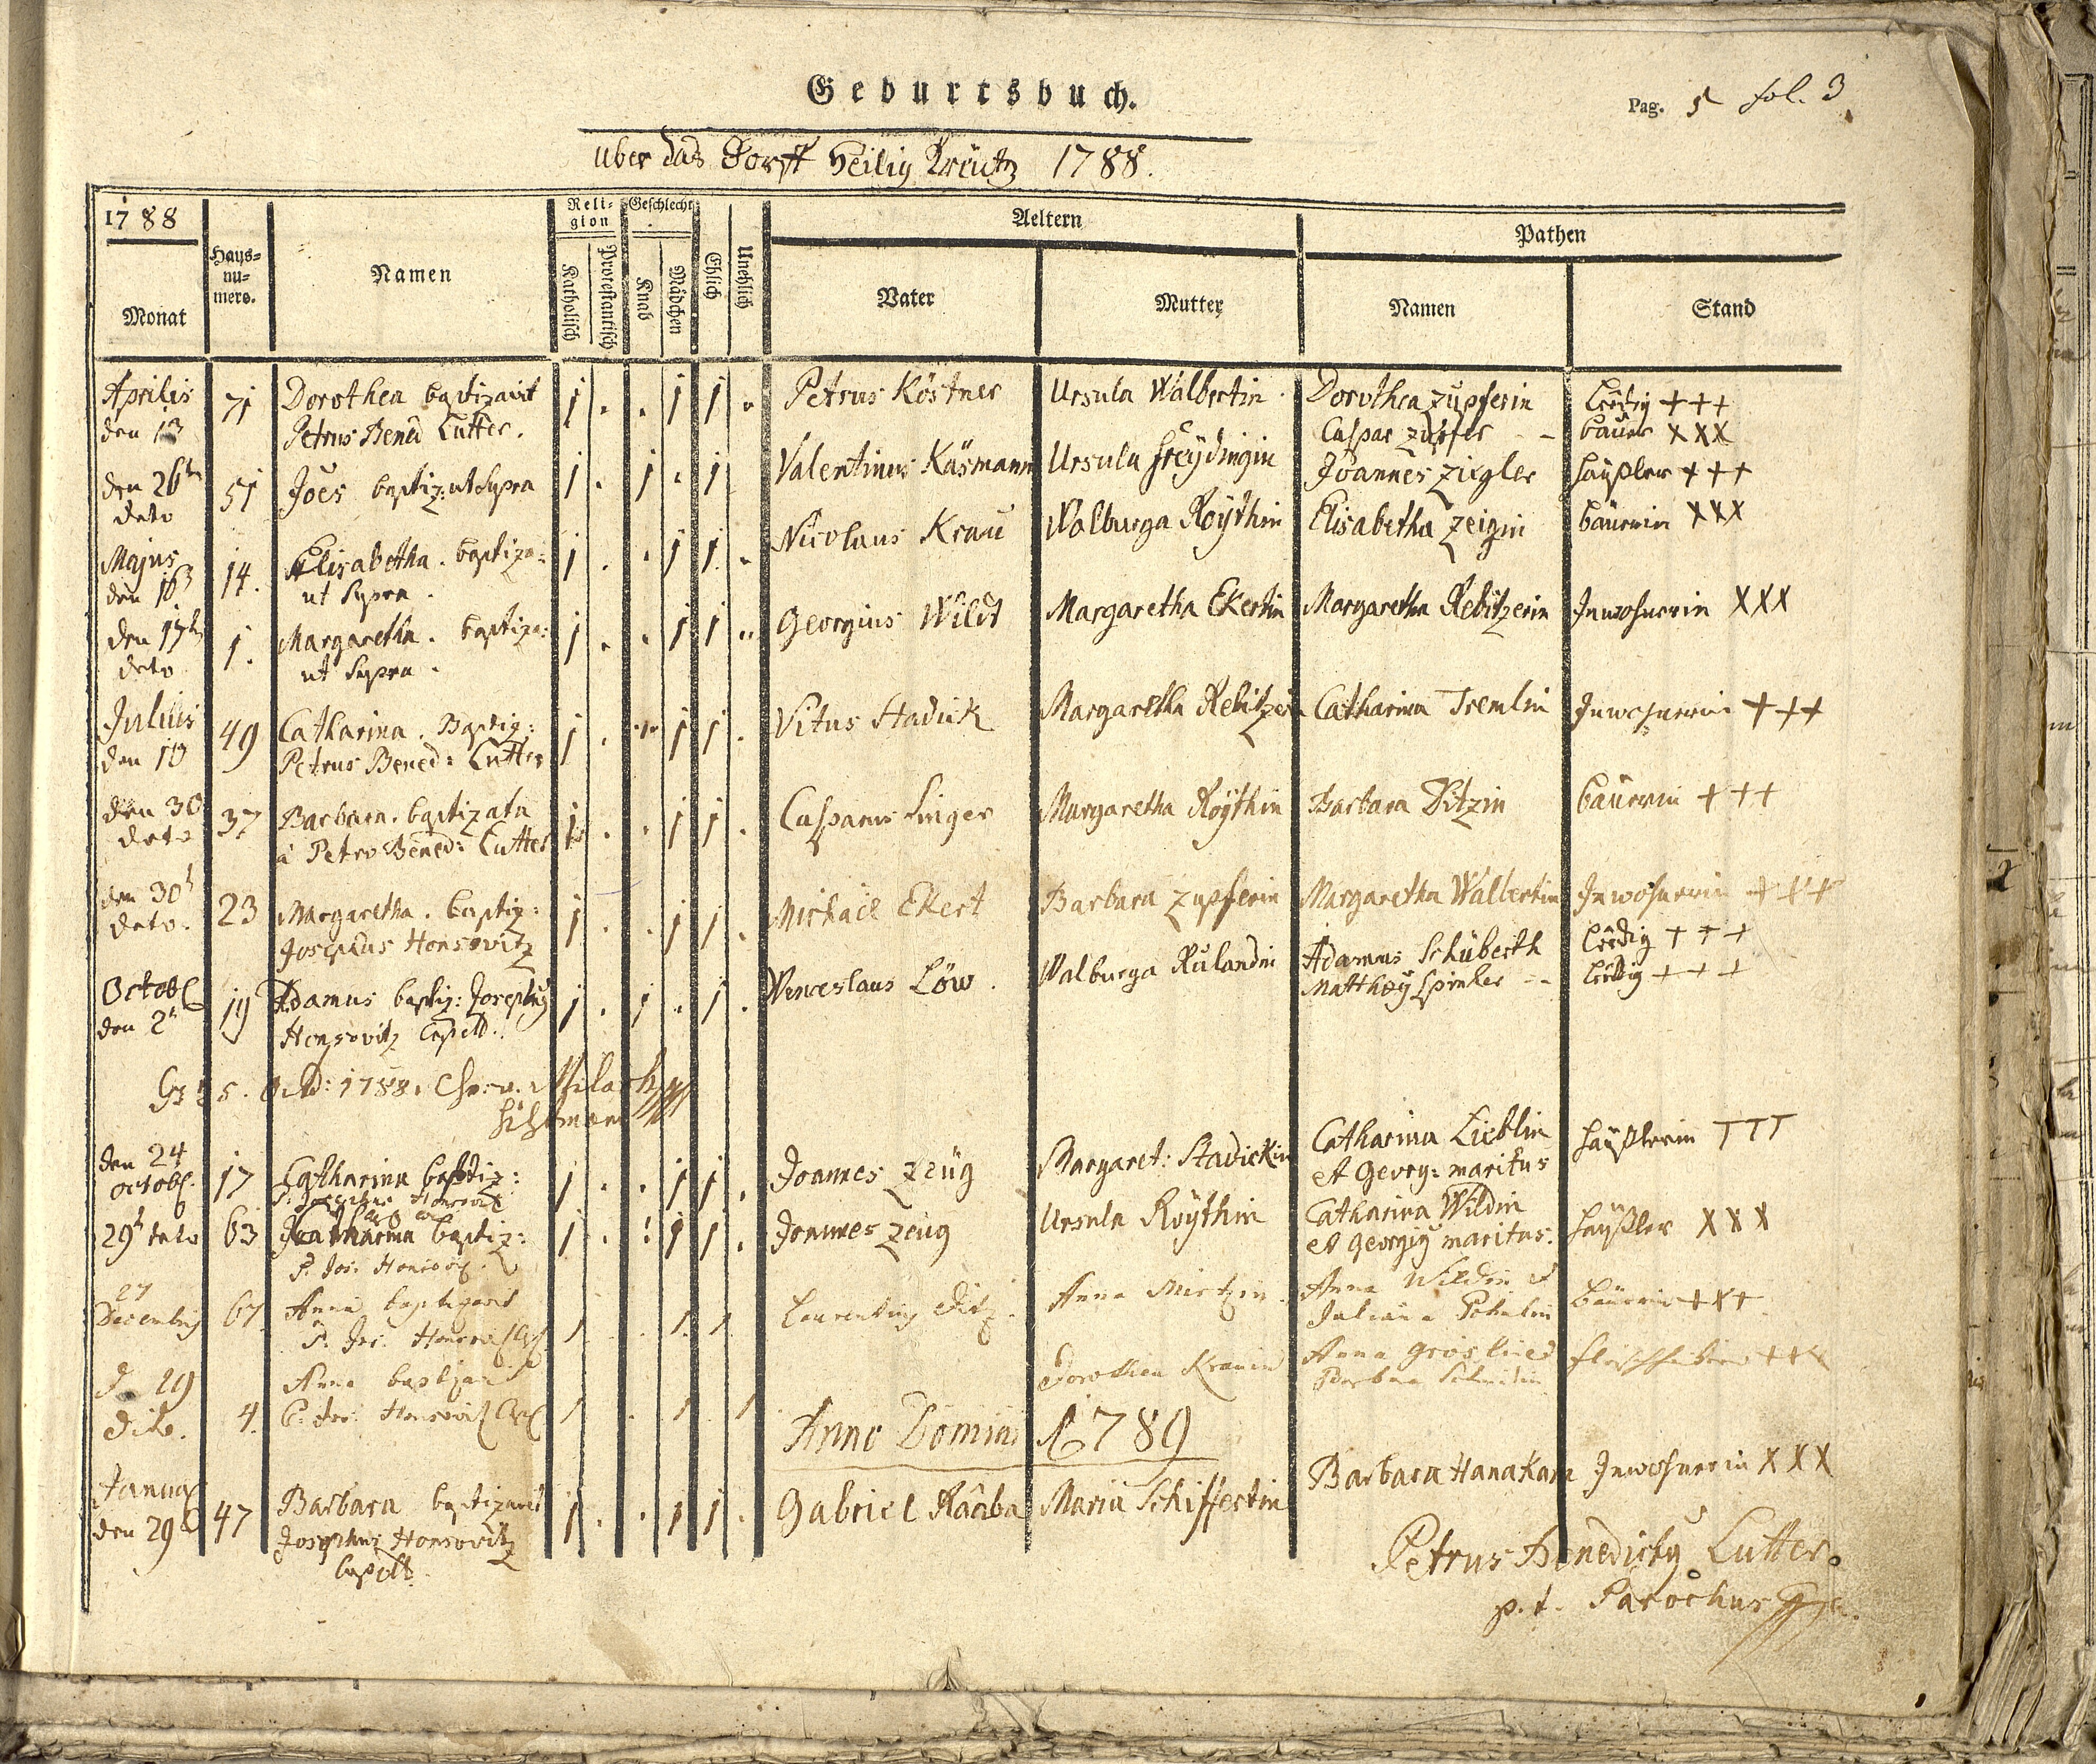 Geburtsbuch.
Pag. 5 fol. 3
uber das Dorff Heilig Kreutz 1788.
1788
Monat
Haus-
nu-
mero.
Namen
Reli-
gion
Katholisch
Protestantisch
Geschlecht
Knab
Mädchen
Ehlich
Unehlich
Aeltern
Vater
Mutter
Pathen
Namen
Stand
Aprilis
den 13
71
Dorothea baptizavit
Petrus Bened Lutter.
1 . . 1 1 .
Petrus Köstner
Ursula Walbertin
Dorothea Zupferin
Caspar Zupfer
Ledig +++
bauer XXX
den 26t
deto
51
Joës baptiz: ut Supra
1 . 1 . 1
Valentinus Käsmann
Ursula Freydingin
Joannes Ziegler
häußler +++
Majus
den 16
14.
Elisabetha. baptiza:
ut Supra.
1 . . 1 1 .
Nicolaus Krau
Walburga Röythin
Elisabetha Zeigin
bäuerin XXX
den 17t
deto
1.
Margaretha. baptiza:
ut Supra.
1 . . 1 1 ..
Georgius Wildt
Margaretha Ekertin
Margaretha Rebitzerin
Inwohnerin XXX
Julius
den 19
49
Catharina. Baptiz:
Petrus Bened: Lutter
1 . . 1 1 .
Vitus Stadick
Margaretha Rebitzerin
Catharina Tremlin
Inwohnerin +++
den 30
deto
37
Barbara. baptizata
à Petro Bened: Lutter
1 . . 1 1 .
Casparus Singer
Margaretha Röythin
Barbara Ditzin
bäuerin +++
den 30t
deto.
23
Margaretha. baptiz:
Josephus Honsovitz
1 . . 1 1 .
Michael Ekert
Barbara Zupferin
Margaretha Walbertin
Inwohnerin +++
Octob
den 2t
19
Adamus baptiz: Josephus
Honsovitz Capell.
1 . 1 . 1 .
Wenceslaus Löw.
Walburga Rulandin
Adamus Schüberth
Matthæy Spinler
Ledig +++
Ledig +++
5. 1788.
den 24
octob.
17
Catharina baptiz:
P: Josephus Honsovitz
1 . . 1 1 .
Joannes Zeüg
Margaret: Stadickin
Catharina Lieblin
et Georg: maritus
häußlerin TTT
29t deto
63
Catharina baptiz:
P. Jos. Honsovitz
1 . . 1 1 .
Joannes Zeug
Ursula Röythin
Catharina Wildin
et Georgiy maritus.
häußler XXX
27
Decembris
67
Anna baptizavit
P. Jos. Honsovitz
1 . . 1 1
Laurentius Ditz.
Anna Mirtzin.
Anna Wildin et
Juliana
bäuerin +++
d. 29
dito.
4.
Anna baptizavit
P. Jos. Honsovitz
1 . 1 1
Dorothea Krauin
Anna
Barbara
+++
Anno Domini 1789
Januar
den 29t
47
Barbara baptizavit
Josephus Honsovitz
Capell.
1 . . 1 1 .
Gabriel Raaba
Maria Schiffertin
Barbara Hanakam
Inwohnerin XXX
Petrus Benedictus Lutter.
p.t. Parochus